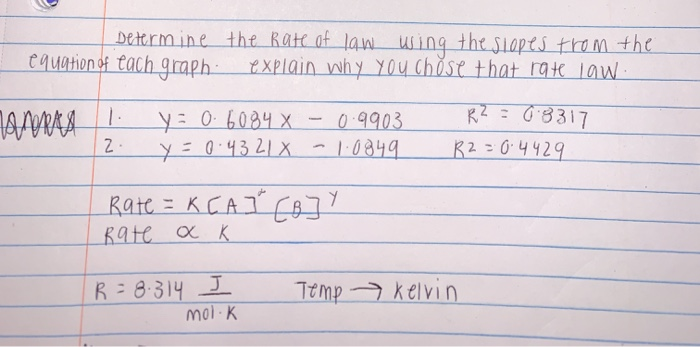 Determine the Rate of law using the slopes from the
equation of each graph. explain why you chose that rate law.
1. y = 0.6084x - 0.9903 R² = 0.8317
2. y = 0.4321x - 1.0849 R2 = 0.4429
Rate = K[A]ˣ [B]ʸ
Rate ∝ K
R = 8.314 J/mol·K Temp → Kelvin